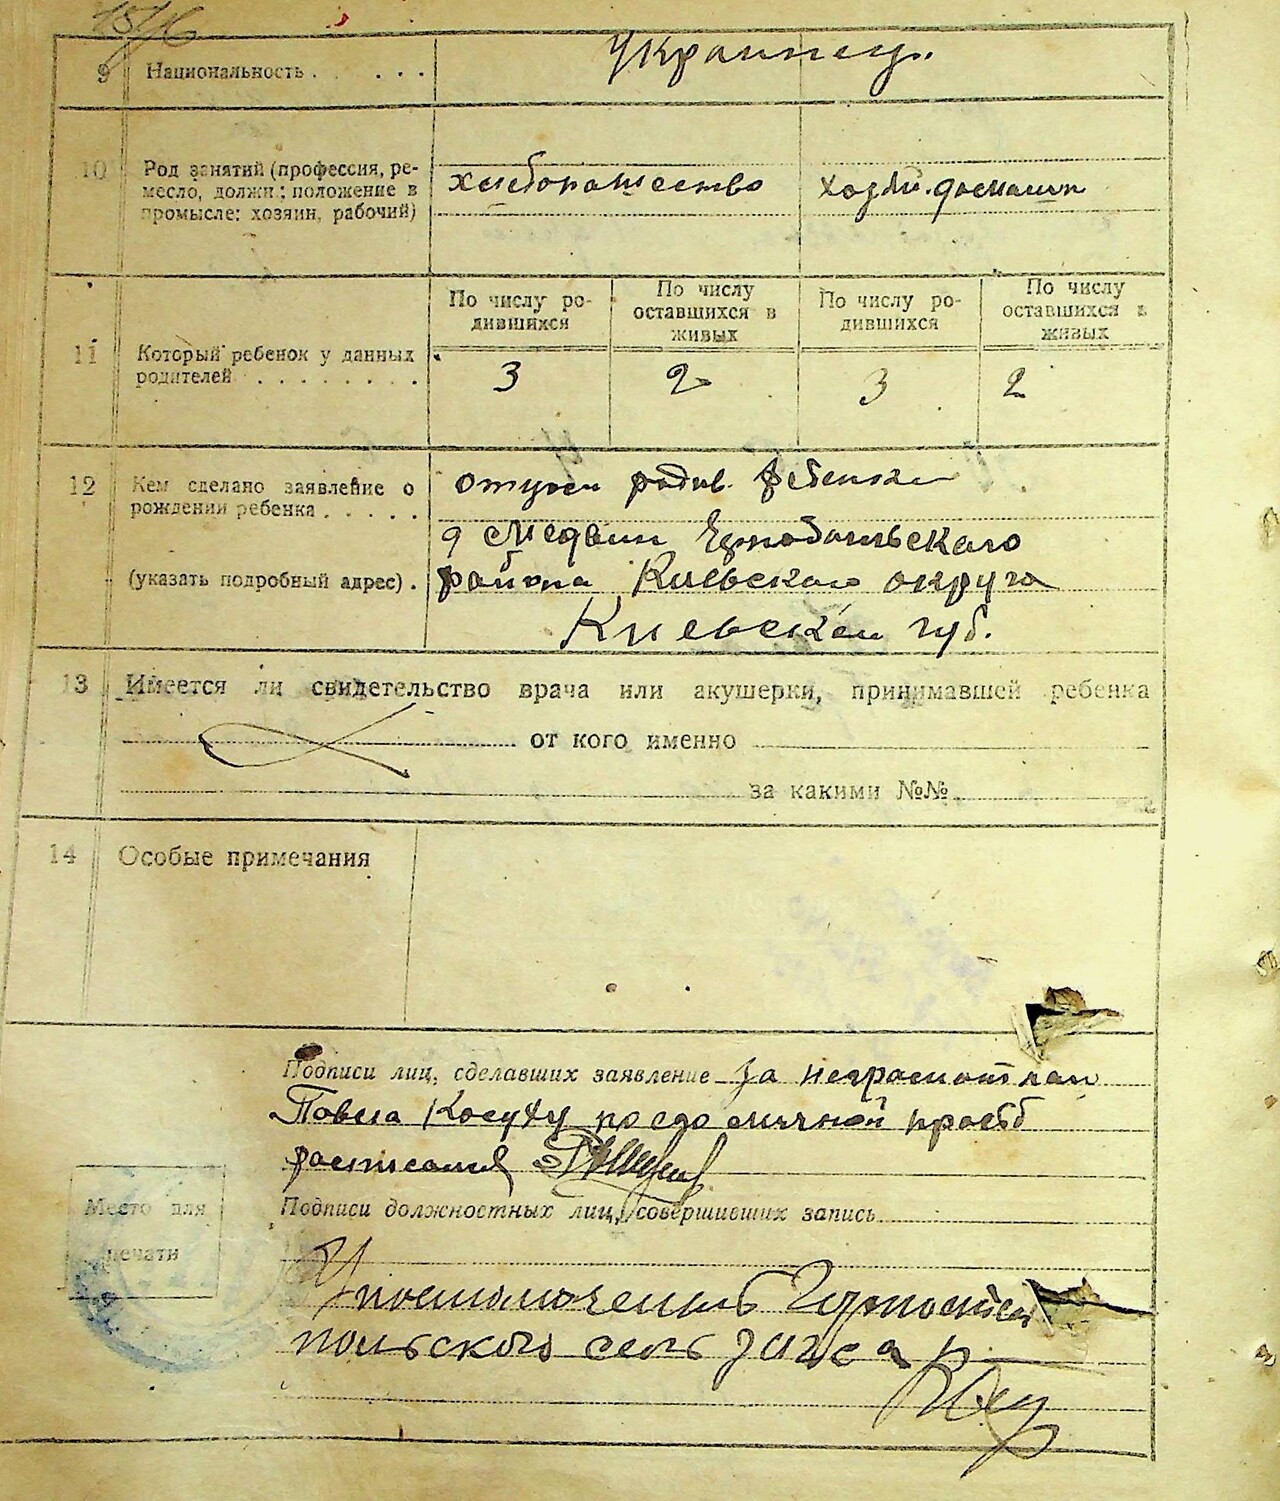 9 Национальность . . . . . Украинец.
10 Род занятий (профессия, ре-
месло, должн.; положение в
промысле: хозяин, рабочий)
хлебопашество хозяй. домашн
По числу ро-
дившихся
По числу
оставшихся в
живых
По числу ро-
дившихся
По числу
оставшихся в
живых
11 Который ребенок у данных
родителей . . . . . . . .
3 2 3 2
12 Кем сделано заявление о
рождении ребенка . . . . .
(указать подробный адрес) .
отцом родив. ребенка
д Медвин Чернобыльского
района Киевского округа
Киевской губ.
13 Имеется ли свидетельство врача или акушерки, принимавшей ребенка
от кого именно
за какими №№
14 Особые примечания
Подписи лиц, сделавших заявление За неграмотного
Павла по его личной просьб
расписался
Подписи должностных лиц, совершивших запись
Место для
печати
Уполномочений Горностай
польского сель загса